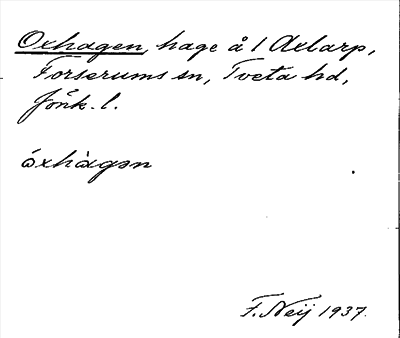 Oxhagen, hage å 1 Axlarp,
Forserums sn, Tveta hd,
Jönk. l.
óxhàgən
F. Neij 1937.